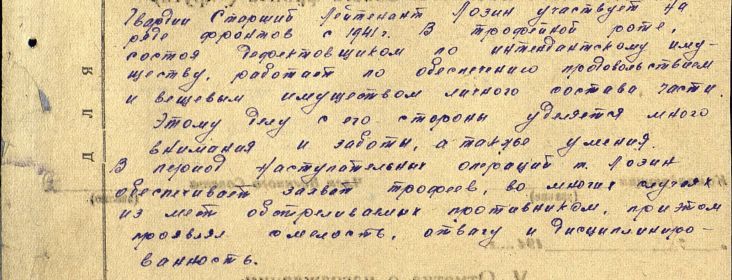 Гвардии Старший Лейтенант Лозин участвует на
ряде фронтов с 1941 г. В трофейной роте,
состоя дефектовщиком по интендантскому иму-
ществу, работает по обеспечению продовольствием
и вещевым имуществом личного состава части.
Этому делу с его стороны уделяется много
внимания и заботы, а также умения.
В период наступательных операций т. Лозин
обеспечивает захват трофеев, во многих случаях
из мест обстреливаемых противником, при этом
проявляя смелость, отвагу и дисциплиниро-
ванность.
для